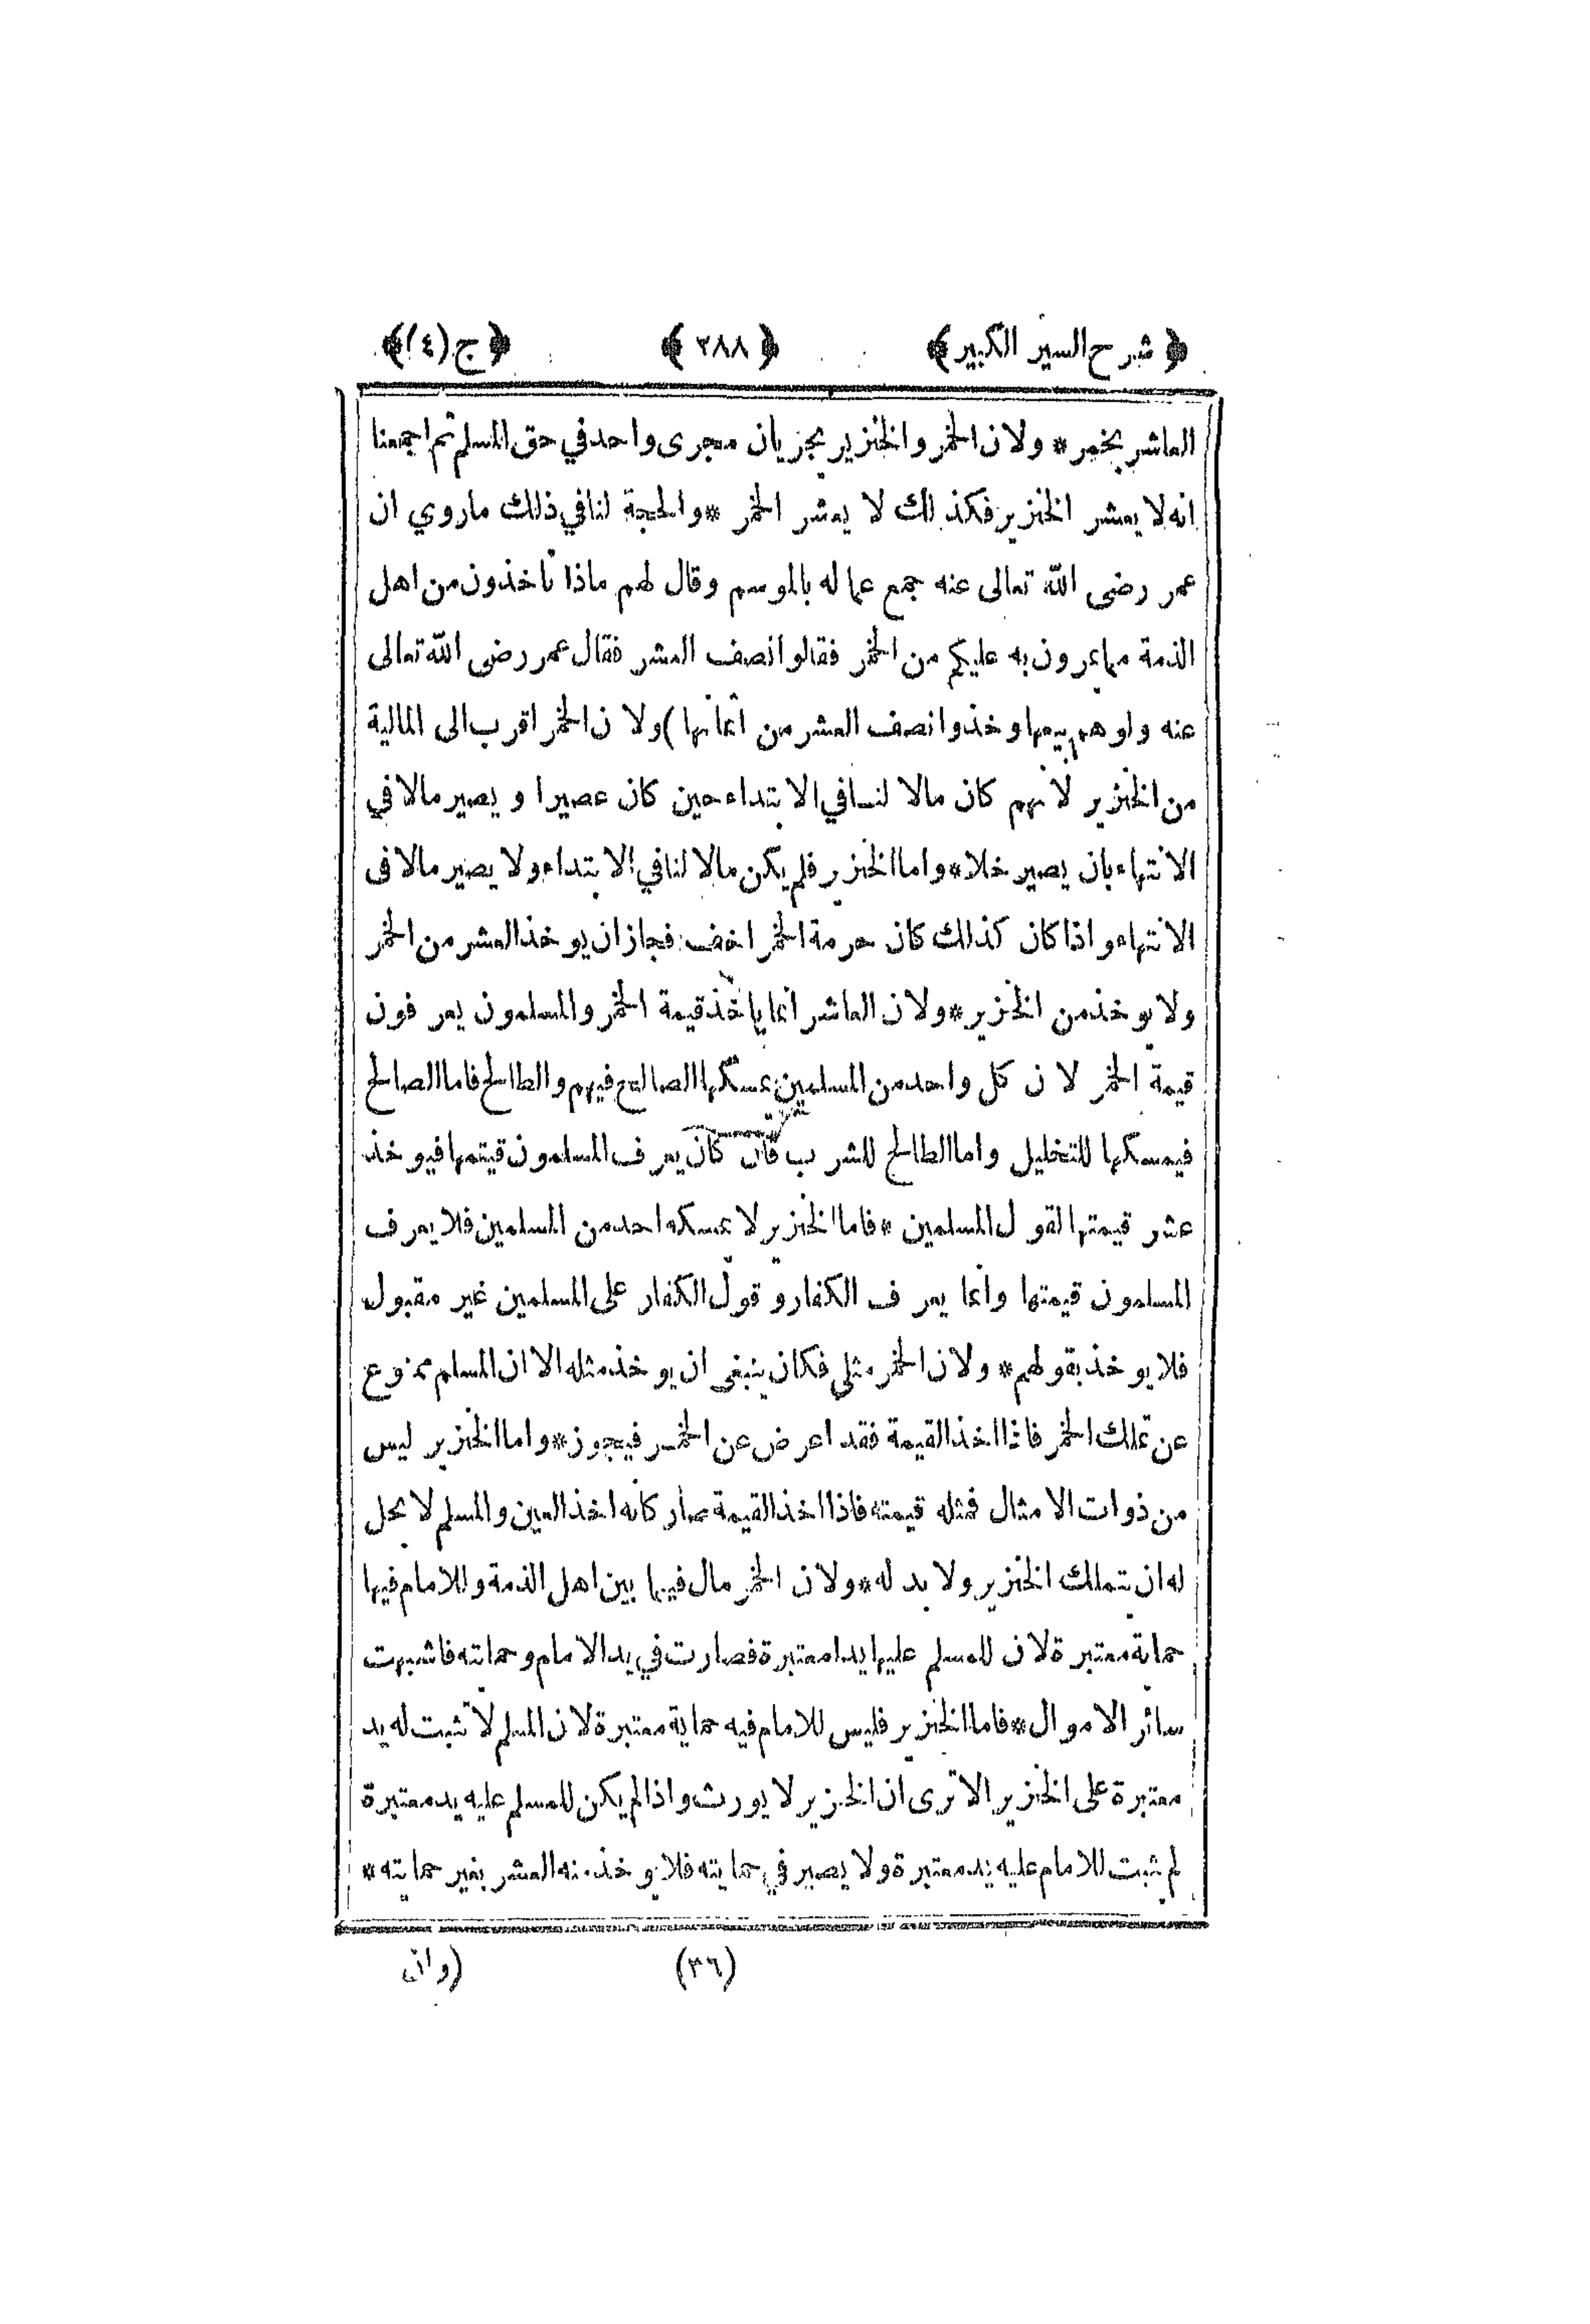 ﴿ شرح السير الكبير ﴾ ﴿ ٢٨٨ ﴾ ﴿ ج (٤) ﴾
العاشر بخمر * ولان الخمر والخنزير يجريان مجرى واحد في حق المسلم ثم اجمعنا
انه لا يعشر الخنزير فكذلك لا يعشر الخمر * والحجة لنا في ذلك ما روي ان
عمر رضى الله تعالى عنه جمع عماله بالموسم وقال لهم ماذا تاخذون من اهل
الذمة مما يمرون به عليكم من الخمر فقالوا نصف العشر فقال عمر رضى الله تعالى
عنه ولوهم بيعها وخذوا نصف العشر من اثمانها ) ولان الخمر اقرب الى المالية
من الخنزير لانهم كان مالا لنا في الابتداء حين كان عصيرا و يصير مالا في
الانتهاء بان يصير خلا * واما الخنزير فلم يكن مالا لنا في الابتداء ولا يصير مالا فى
الانتهاء واذا كان كذلك كان حرمة الخمر اخف فجاز ان يوخذ العشر من الخمر
ولا يوخذ من الخنزير * ولان العاشر انما ياخذ قيمة الخمر والمسلمون يعرفون
قيمة الخمر لان كل واحد من المسلمين يمسكها الصالح فيهم والطالح فاما الصالح
فيمسكها للتخليل واما الطالح للشرب كان يعرف المسلمون قيتمها فيوخذ
عشر قيمتها لقول المسلمين * فاما الخنزير لا يمسكه احد من المسلمين فلا يعرف
المسلمون قيمتها وانما يعرف الكفار و قول الكفار على المسلمين غير مقبول
فلا يوخذ بقولهم * ولان الخمر مثلي فكان ينبغى ان يوخذ مثله الا ان المسلم ممنوع
عن تملك الخمر فاذا اخذ القيمة فقد اعرض عن الخمر فيجوز * واما الخنزير ليس
من ذوات الامثال فمثله قيمته فاذا اخذ القيمة صار كانه اخذ العين والمسلم لا يحل
له ان يتملك الخنزير ولا بد له * ولان الخمر مال فيها بين اهل الذمة وللامام فيها
حماية معتبرة لان للمسلم عليها يدا معتبرة فصارت في يد الامام وحمايته فاشبهت
سائر الاموال * فاما الخنزير فليس للامام فيه حماية معتبرة لان المسلم لا تثبت له يد
معتبرة على الخنزير الا ترى ان الخنزير لا يورث واذا لم يكن للمسلم عليه يد معتبرة
لم يثبت للامام عليه يد معتبرة ولا يصير في حمايته فلا يوخذ منه العشر بغير حمايته *
(٣٦) (وان